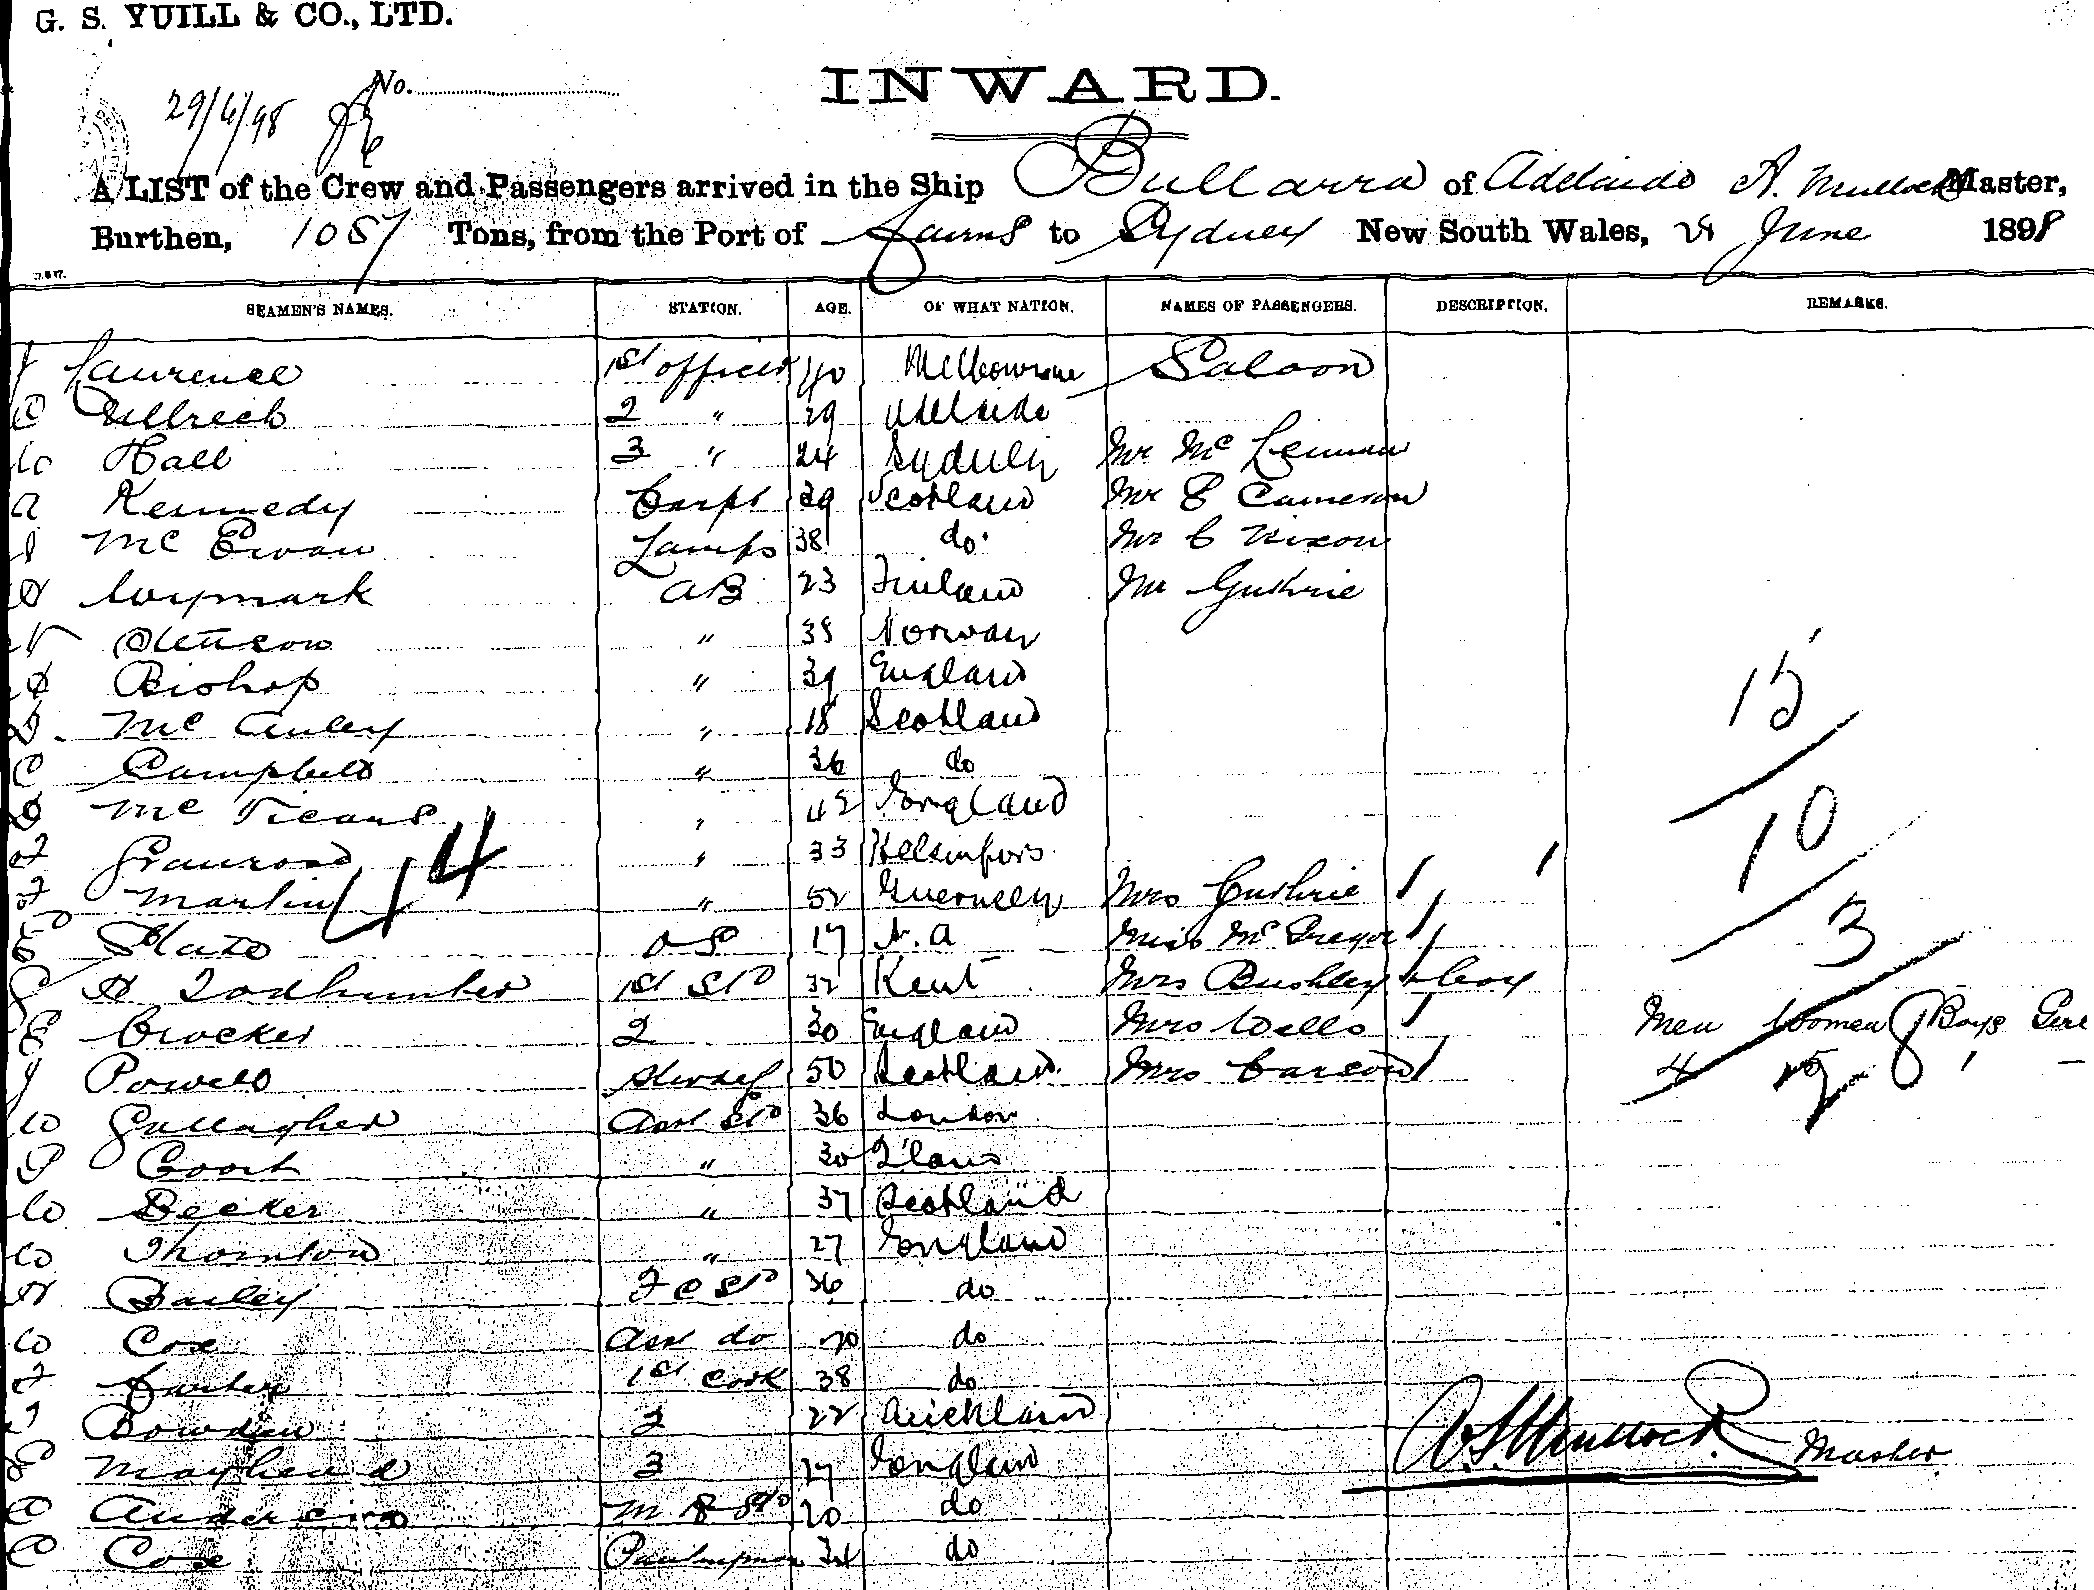 G. S. YUILL & CO., LTD.
No.
29/6/98
INWARD.
A LIST of the Crew and Passengers arrived in the Ship Bullarra of Adelaide A. Mullock Master,
Burthen, 1057 Tons, from the Port of Cairns to Sydney New South Wales, 28 June 1898
SEAMEN'S NAMES. STATION. AGE. OF WHAT NATION. NAMES OF PASSENGERS. DESCRIPTION. REMARKS.
J Laurence 1st officer 40 Melbourne Saloon
C Ullrech 2 " 29 Adelaide
W Hall 3 " 24 Sydney Mr Mc Lennan
A Kennedy Carpt 39 Scotland Mr E Cameron
Mc Ewan Lamps 38 do Mr C Nixon
Waymark AB 23 Finland Mr Guthrie
" 38 Norway
Bishop " 39 England
Mc Auley " 18 Scotland 15
C Campbell " 36 do
Mc Vicans " 42 England 10
" 33 Helsinfors
F Martin 14 " 52 Guernsey Mrs Guthrie /
Slate O S 17 S. A Miss McGregor / 3
H Todhunter 1st Std 32 Kent Mrs Bushley + boy
E Crocker 2 30 England Mrs Wells / Men Women Boys Girl
J Powell 50 Scotland Mrs Carson / 4 5 1 —
W Gallagher Asst Std 36 London
P Coort " 30 I'land
W Becker " 37 Scotland
W Thornton " 27 England
H Bailey F C Std 36 do
W Cox Asst do 20 do
F 1st Cook 38 do
J Bowden 2 22 Auckland
Mayhead 3 27 England
A Anderson M R Std 20 do
C Cox Pantryman 34 do
A. S. Mullock. Master